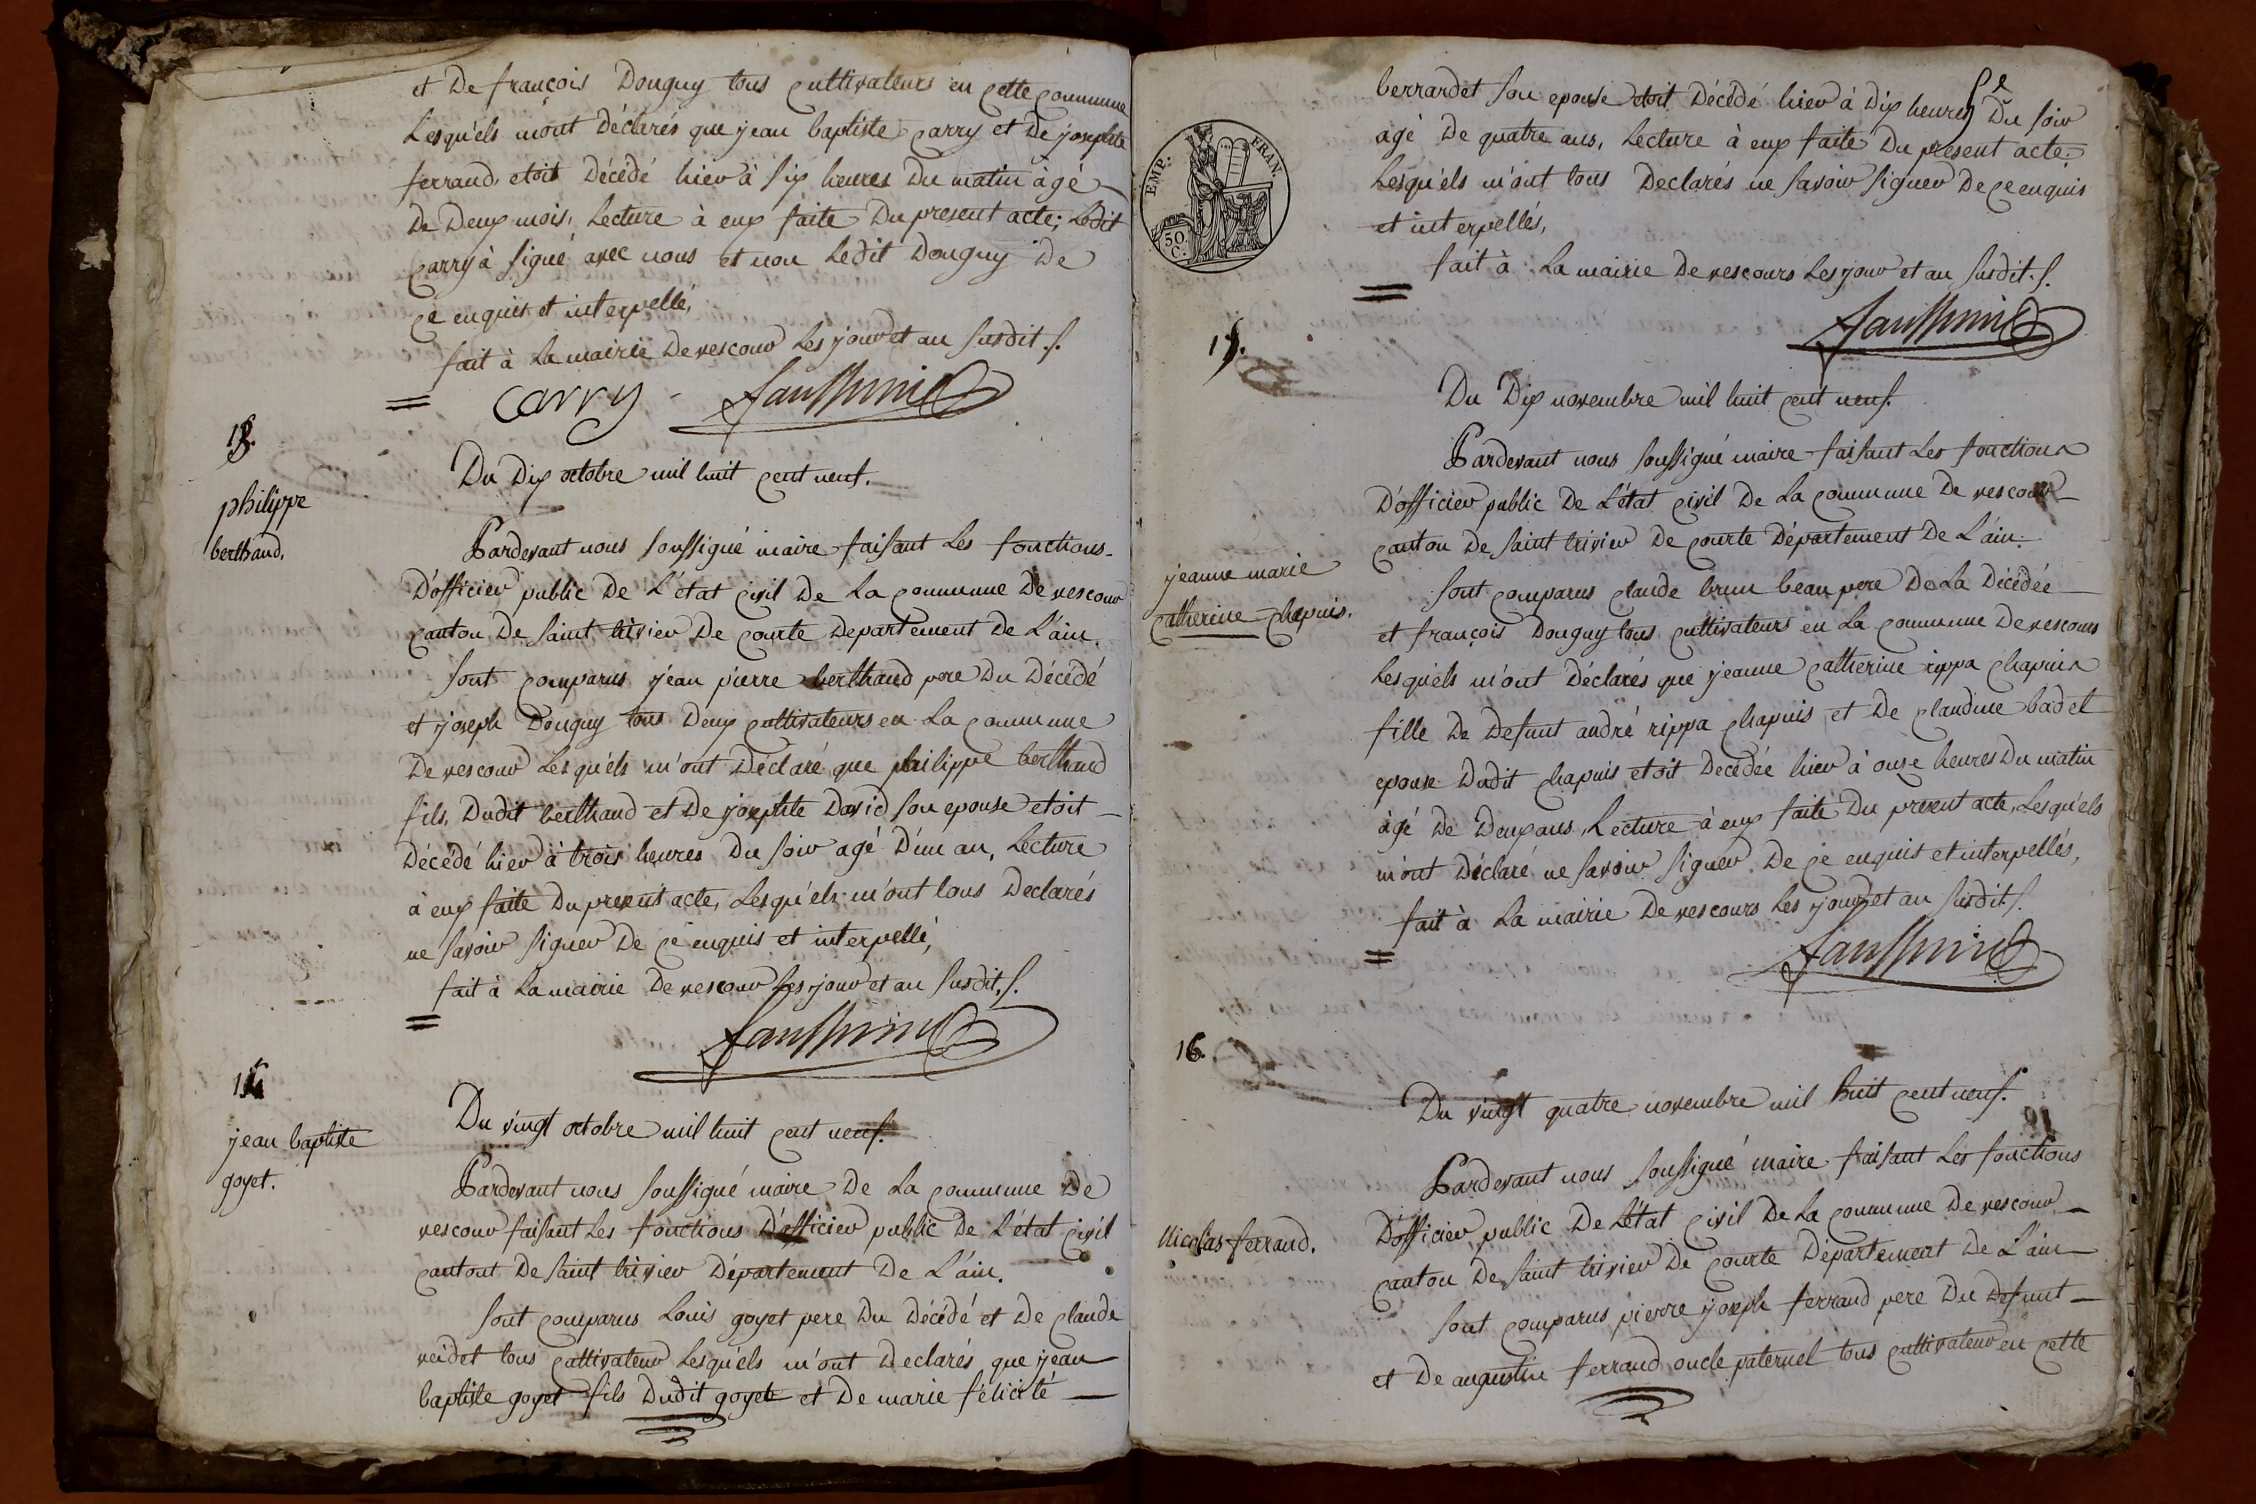 et De françois Donguy tous cultivateurs en cette commune
Lesquéls m'ont Déclarés que jean baptiste carry et de josephte
ferrand, etoit Décédé hier à six heures Du matin àgé
De Deux mois, Lecture à eux faite Du present acte; Ledit
carry à signé avec nous et non Ledit Donguy De
ce enquis et interpellé,
fait à La mairie De vescour Les jour et an susdit ./.
carry
13.
philippe
berthaud.
Du Dix octobre mil huit cent neuf.
Pardevant nous soussigné maire faisant Les fonctions
D'officier public De L'état civil De La commune De vescour
canton De saint trivier De courte Departement De L'ain.
sont comparus jean pierre berthaud pere Du Décédé
et joseph Donguy tous Deux cultivateurs en La commune
De vescour Lesquéls m'ont Déclaré que philippe berthaud
fils, Dudit berthaud et De josephte David son epouse etoit
Décédé hier à trois heures Du soir agé D'un an, Lecture
à eux faite Du present acte, Lesquéls m'ont tous Declarés
ne savoir signer De ce enquis et interpellé,
fait à La mairie De vescour Les jour et an susdit ./.
14
jean baptiste
goyet.
Du vingt octobre mil huit cent neuf.
Pardevant nous soussigné maire De La commune De
vescour faisant Les fonctions D'officier public De L'état civil
cantont De saint trivier Département De L'ain.
sont comparus Louis goyet pere Du Décédé et De claude
veidet tous cultivateur Lesquéls m'ont Declarés que jean
baptiste goyet fils Dudit goyet et De marie félicité
berrardet son epouse etoit Décédé hier à Dix heures Du soir
agé De quatre ans, Lecture à eux faite Du present acte;
Lesquéls m'ont tous Declarés ne savoir signer De ce enquis
et interpellés,
fait à La mairie De vescours Les jour et an susdit ./.
EMP: FRAN.
50.
C.
15.
Du Dix novembre mil huit cent neuf.
Pardevant nous soussigné maire faisant Les fonctions
D'officier public De L'état civil De La commune De vescour
canton De saint trivier De courte Département De L'ain.
jeanne marie
catherine chapuis.
sont comparus claude brun beau pere De La Décédée
et françois Donguy tous cultivateurs en La commune De vescours
Lesquéls m'ont Déclarés que jeanne catherine rippa chapuis
fille De Defunt andré rippa chapuis et De claudine badet
epouse Dudit chapuis etoit Decédée hier à onze heures Du matin
àgé De Deux ans, Lecture à eux faite Du present acte, Lesquéls
m'ont Déclaré ne savoir signer De ce enquis et interpellés,
fait à La mairie De vescours Les jour et an susdit ./.
16.
Du vingt quatre novembre mil huit cent neuf.
Pardevant nous soussigné maire faisant Les fonctions
Nicolas ferrand.
D'officier public De L'état civil De La commune De vescour
canton De saint trivier De courte Département De L'ain
sont comparus pierre joseph ferrand pere Du Defunt
et De augustin ferrand oncle paternel tous cultivateur en cette